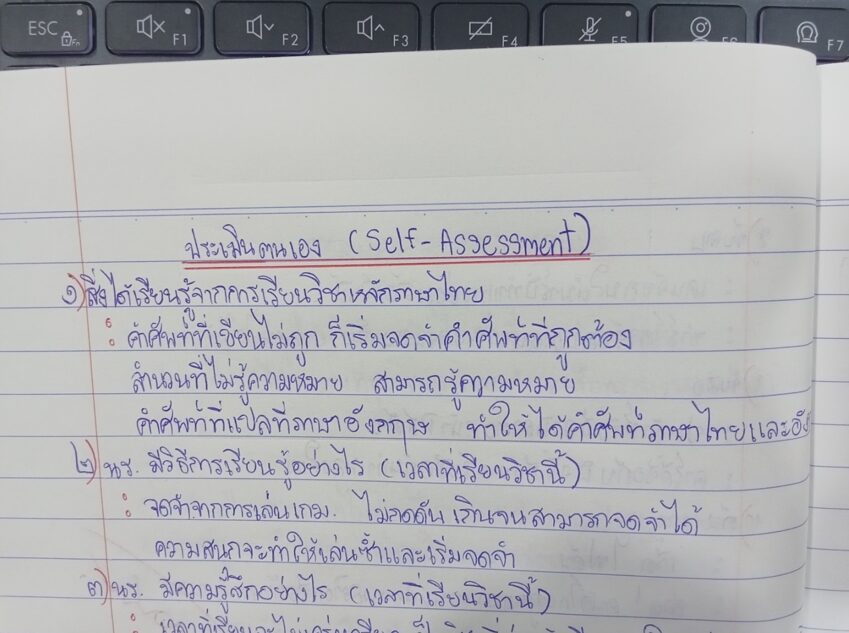 ESC Fn F1 F2 F3 F4 F5 F6 F7
ประเมินตนเอง (Self-Assessment)
๑) สิ่งได้เรียนรู้จากการเรียนวิชาหลักภาษาไทย
: คำศัพท์ที่เขียนไม่ถูก ก็เริ่มจดจำคำศัพท์ที่ถูกต้อง
สำนวนที่ไม่รู้ความหมาย สามารถรู้ความหมาย
คำศัพท์ที่แปลที่ภาษาอังกฤษ ทำให้ได้คำศัพท์ภาษาไทยและอัง
๒) นร. มีวิธีการเรียนรู้อย่างไร (เวลาที่เรียนวิชานี้)
: จดจำจากการเล่นเกม. ไม่กดดันเกินจนสามารถจดจำได้
ความสนุกจะทำให้เล่นซ้ำและเริ่มจดจำ
๓) นร. มีความรู้สึกอย่างไร (เวลาที่เรียนวิชานี้)
: เวลาที่เรียนจะไม่